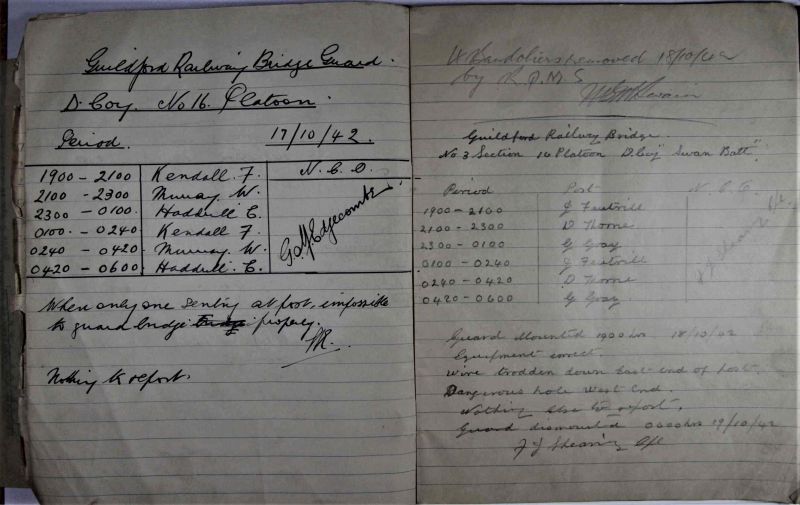 Guildford Railway Bridge Guard.
D. Coy. No 16. Platoon.
Period. 17/10/42.
N. C. O.
1900 - 2100 Kendall. F.
2100 - 2300 Murray. W.
2300 - 0100. Haddrill. E.
0100. - 0240 Kendall F.
0240 - 0420 Murray. W.
0420 - 0600 Haddrill. E.
Edgecombe
When only one sentry at post, impossible
to guard bridge properly.
Nothing to report.
4 Bandoliers removed 18/10/42
by R.Q.M.S
Guildford Railway Bridge.
No 3 Section 16 Platoon D. Coy "Swan Batt"
Period Post N. C. O.
1900 - 2100 J
2100 - 2300 D Thorne
2300 - 0100 G Gray
0100 - 0240 J
0240 - 0420 D Thorne
0420 - 0600 G Gray
Guard Mounted 1900 hrs 18/10/42
Equipment correct.
Wire trodden down East end of post.
Dangerous hole West End
Nothing else to report.
Guard dismounted 0600 hrs 19/10/42